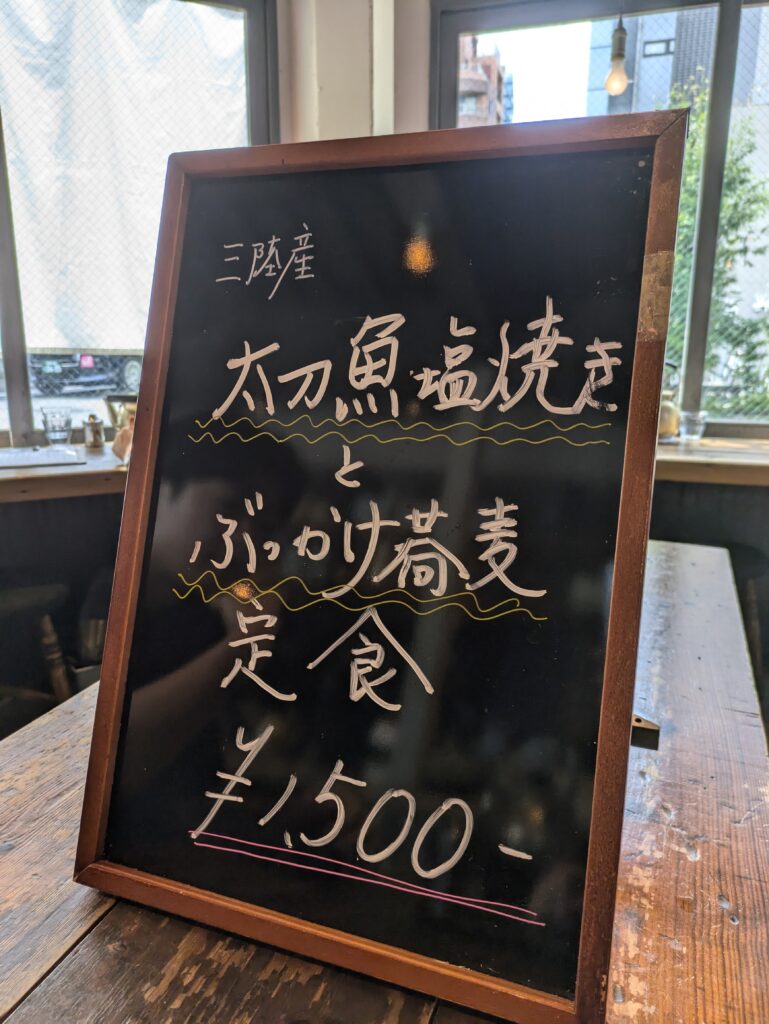 三陸産
太刀魚塩焼き
と
ぶっかけ蕎麦
定食
¥1,500-